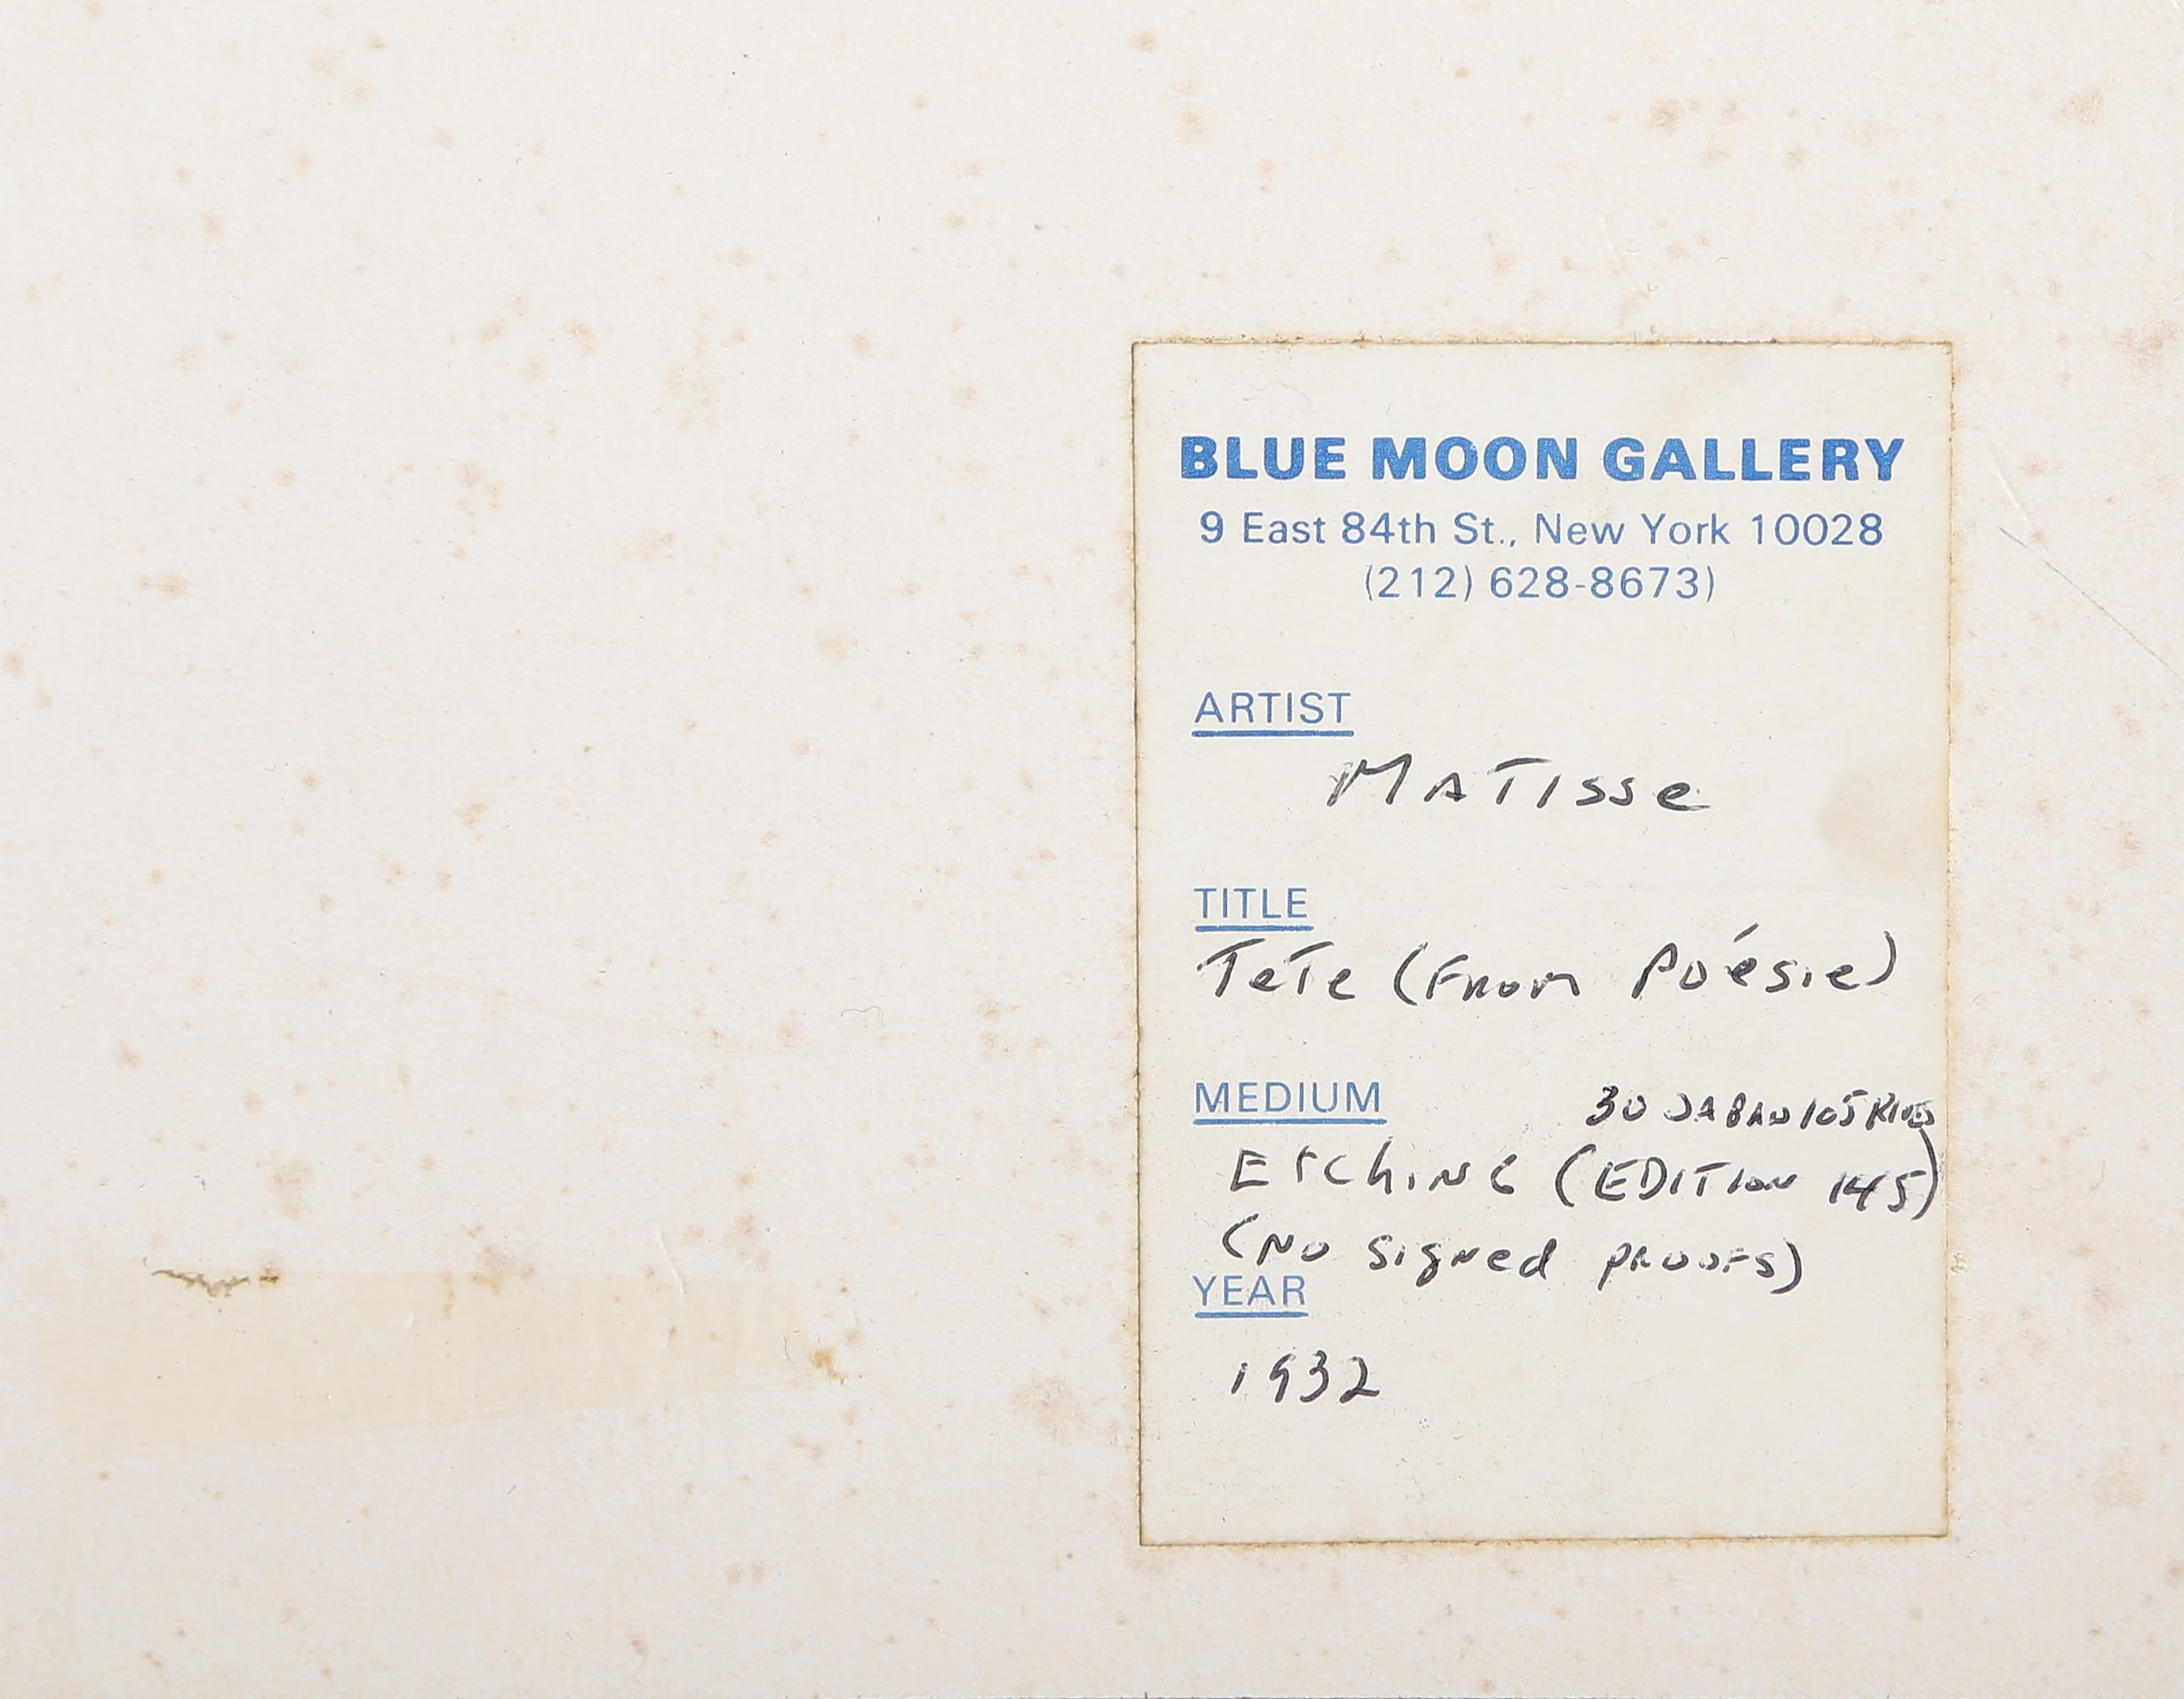 BLUE MOON GALLERY
9 East 84th St., New York 10028
(212) 628-8673)
ARTIST
MATISSE
TITLE
TeTe (FROM Poésie)
MEDIUM
30 JAPAN 105 RIVES
ETChING (EDITION 145)
(NO SigNed PROOFS)
YEAR
1932